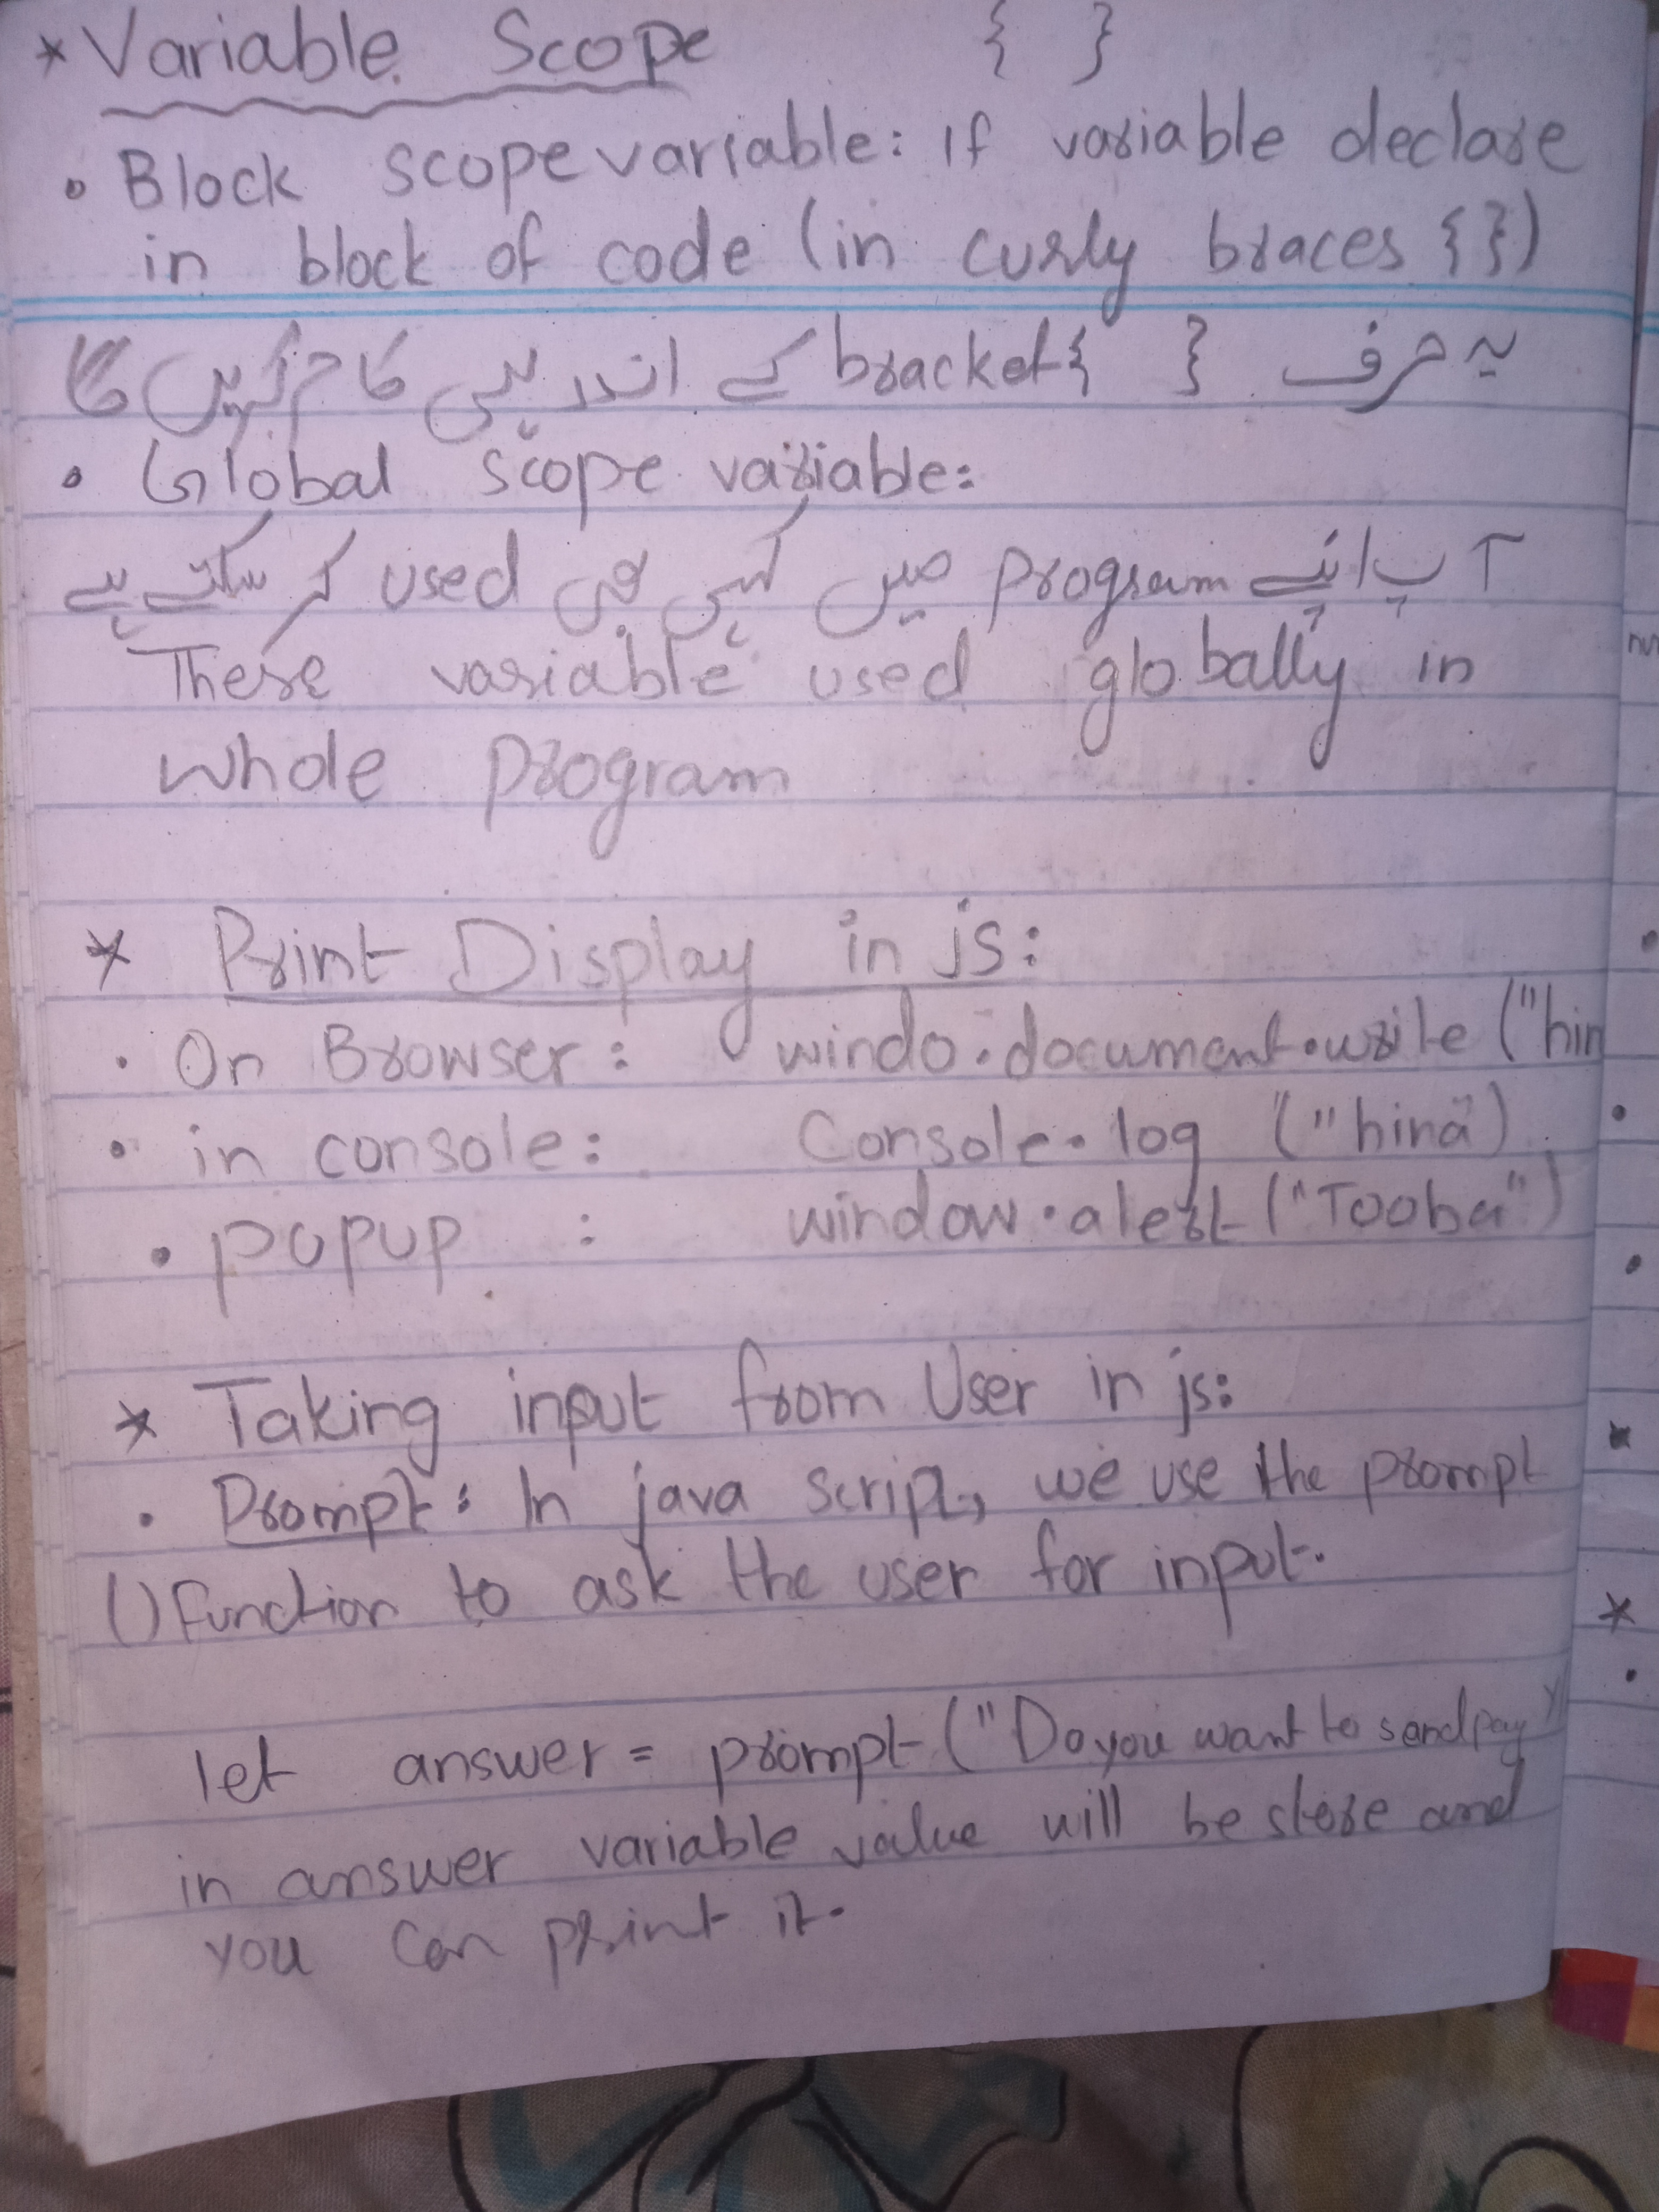 * Variable Scope { }
• Block scope variable: if variable declare
in block of code (in curly braces {})
یہ صرف { } bracket کے اندر ہی کام کریں گا
• Global scope variable:
آپ اپنے program میں کہی بھی used کر سکتے ہے
These variable used globally in
whole program
* Print Display in js:
• On Browser: windo.document.write ("hin
• in console: Console.log ("hina")
• popup : window.alert ("Tooba")
* Taking input from User in js:
• Prompt: In java script, we use the prompt
() function to ask the user for input.
let answer = prompt ("Do you want to send pay
in answer variable value will be store and
you can print it.